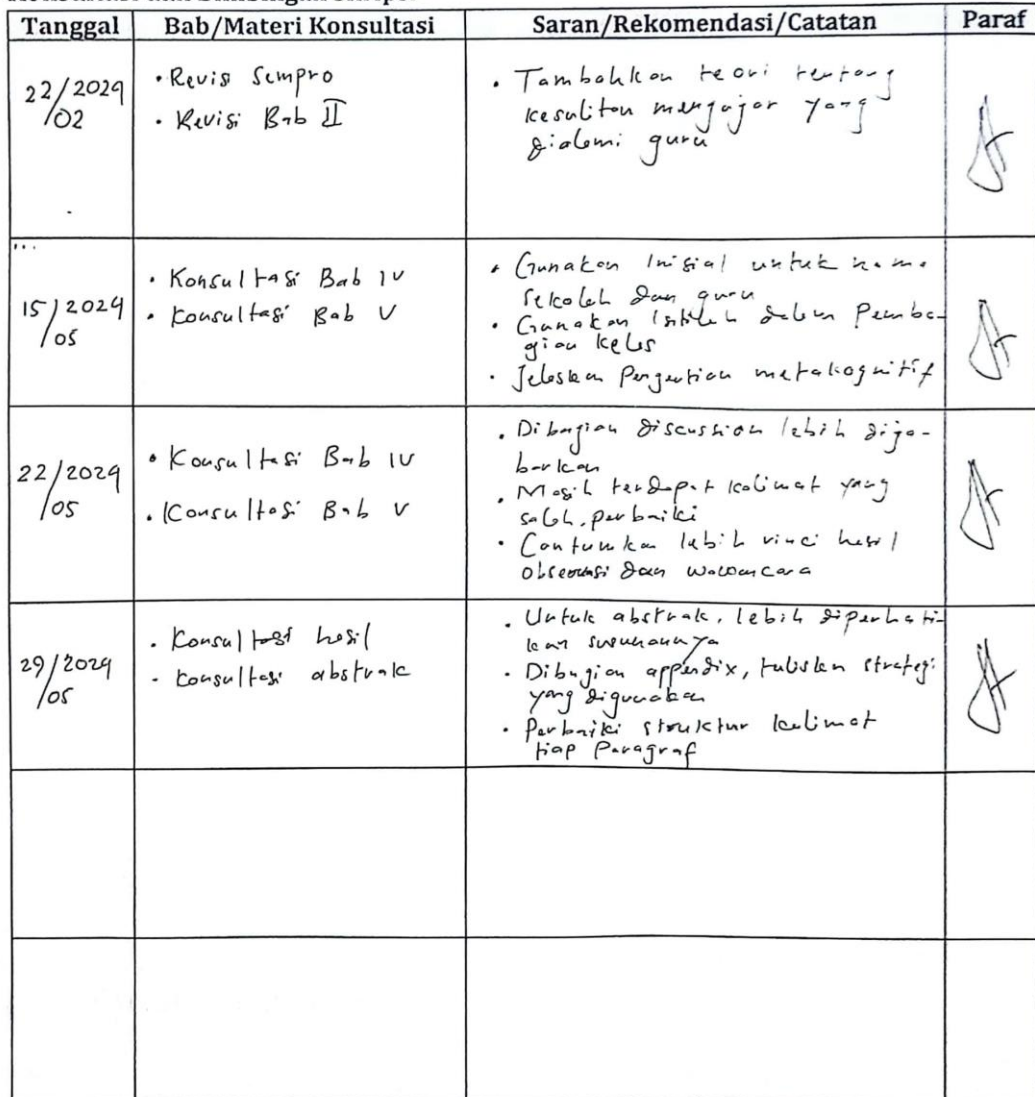 Tanggal Bab/Materi Konsultasi Saran/Rekomendasi/Catatan Paraf
22/2024
/02
• Revisi Sempro
• Revisi Bab II
• Tambahkan teori tentang
kesulitan mengajar yang
dialami guru
15/2024
/05
• Konsultasi Bab IV
• Konsultasi Bab V
• Gunakan Inisial untuk nama
sekolah dan guru
• Gunakan Istilah dalam Pemba-
gian kelas
• Jelaskan Pengertian metakognitif
22/2024
/05
• Konsultasi Bab IV
• Konsultasi Bab V
• Dibagian discussion lebih dija-
barkan
• Masih terdapat kalimat yang
salah, perbaiki
• Cantumkan lebih rinci hasil
observasi dan wawancara
29/2024
/05
• Konsultasi hasil
• Konsultasi abstrak
• Untuk abstrak, lebih diperhati-
kan susunannya
• Dibagian appendix, tuliskan strategi
yang digunakan
• Perbaiki struktur kalimat
tiap Paragraf